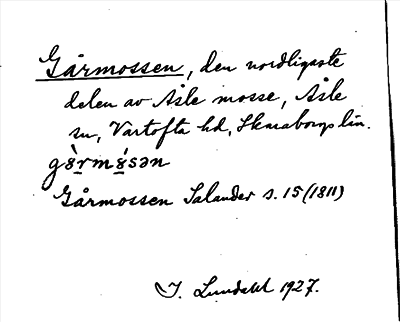 Gårmossen, den nordligaste
delen av Åsle mosse, Åsle
sn, Vartofta hd, Skaraborgs län.
gɵ̀rmɵ́sən
Gårmossen Salander s. 15 (1811)
I. Lundahl 1927.